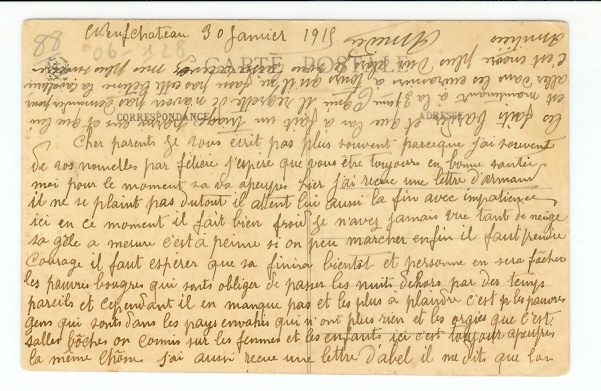 Neufchateau 30 Janvier 1915
88
06-128
CARTE POSTALE
CORRESPONDANCE
ADRESSE
Cher parents Je vous écrit pas plus souvent parceque j'ai souvent
de vos nouvelles par félicie J'espère que vous ête toujours en bonne santée
moi pour le moment sa va apeuprès hier j'ai recue une lettre d'armand
il ne se plaint pas dutout il attent lui aussi la fin avec impatience
ici en ce moment il fait bien froid Je n'avez jamais vue tant de neige
sa gèle a mesure c'est à peinne si on peu marcher enfin il faut prendre
courage il faut espérer que sa finira bientôt et personne en sera fâcher
les pauvre bougres qui sonts obliger de passer les nuits dehors par des temps
pareils et cependant il en manque pas et les plus à plaindre c'est les pauvres
gens qui sonts dans les pays envahis qui n'ont plus rien et les orgies que c'est
salles bôches on comis sur les femmes et les enfants ici c'est toujour apeuprès
la même chôse j'ai aussi recue une lettre d'abel il me dits que l'on
les faits et que l'on a fait un
est maintenant à la il regrette de n'avoir pas
aller dans les
c'est moin plus
Amédée